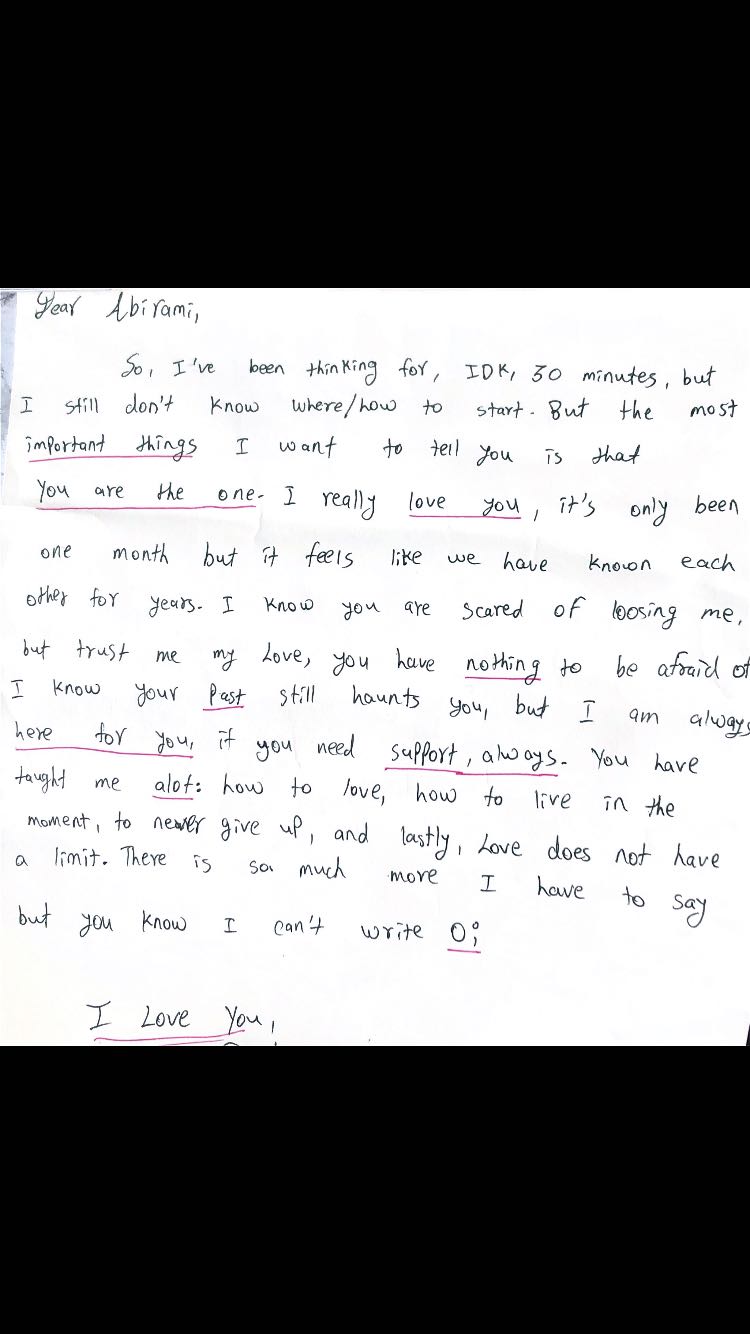 Dear Abirami,
So, I've been thinking for, IDK, 30 minutes, but
I still don't know where/how to start. But the most
important things I want to tell you is that
You are the one. I really love you, it's only been
one month but it feels like we have known each
other for years. I know you are scared of loosing me,
but trust me my Love, you have nothing to be afraid of
I know your Past still haunts you, but I am always
here for you, if you need support, always. You have
taught me alot: how to love, how to live in the
moment, to never give up, and lastly, Love does not have
a limit. There is so much more I have to say
but you know I can't write
I Love You,